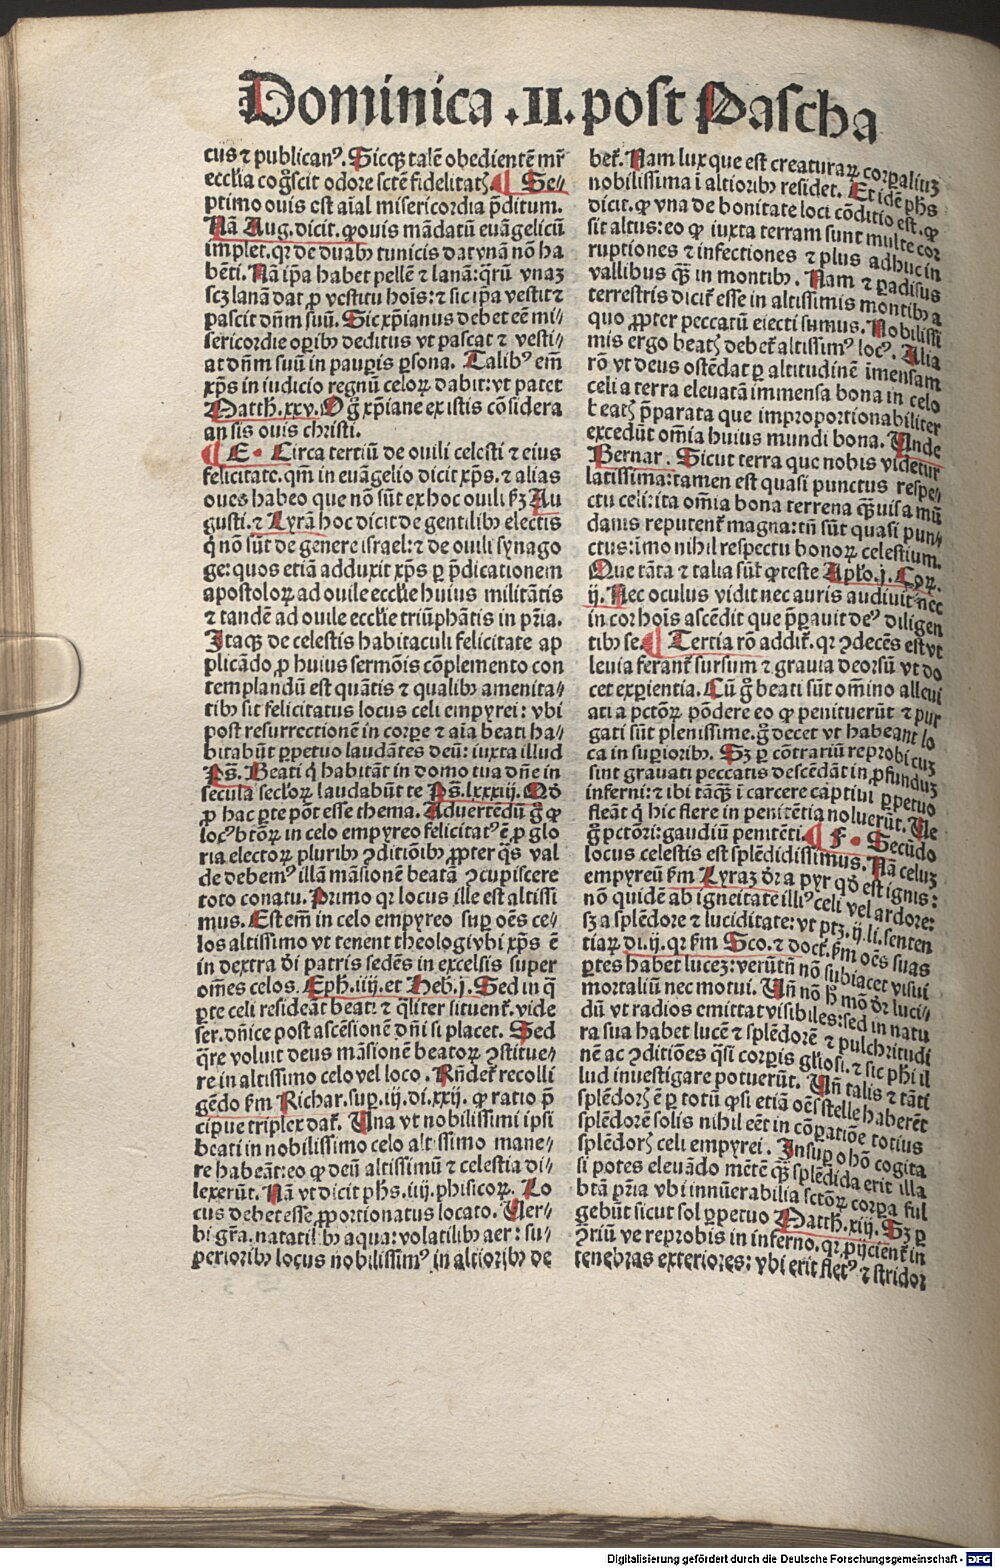 Dominica .II. post Pascha
cus ⁊ publicanꝰ. Sicqꝫ talē obedientē mr̄
ecclīa cog̃scit odore sctē fidelitatꝭ. ¶ Se⸗
ptimo ouis est aīal misericordia p̄ditum.
Nā Aug. dicit. ꝙ ouis mādatū euāgelicū
implet. qr de duabꝰ tunicis dat vnā nō ha
bēti. Nā ip̄a habet pellē ⁊ lanā: qꝛū vnaꝫ
scꝫ lanā dat ꝓ vestitu hoīs: ⁊ sic ip̄a vestit ⁊
pascit dn̄m suū. Sic xp̄ianus debet eē mi⸗
sericordie oꝑibꝰ deditus vt pascat ⁊ vesti⸗
at dn̄m suū in pauꝑis ꝑsona. Talibꝰ em̄
xp̄s in iudicio regnū celoꝝ dabit: vt patet
Matth̄. xxv. O g̊ xp̄iane ex istis cōsidera
an sis ouis christi.
¶ E. Circa tertiū de ouili celesti ⁊ eius
felicitate. qm̄ in euāgelio dicit xp̄s. ⁊ alias
oues habeo que nō sūt ex hoc ouili ẜꝫ Au
gusti. ⁊ Lyrā hoc dicit de gentilibꝰ electis
q̇ nō sūt de genere israel: ⁊ de ouili synago
ge: quos etiā adduxit xp̄s ꝑ p̄dicationem
apostoloꝝ ad ouile eccl̄ie huius militātis
⁊ tandē ad ouile eccl̄ie triūphātis in pr̄ia.
Itaqꝫ de celestis habitaculi felicitate ap
plicādo ꝓ huius sermōis cōplemento con
templandū est quātis ⁊ qualibꝰ amenita⸗
tibꝰ sit felicitatus locus celi empyrei: vbi
post resurrectionē in corꝑe ⁊ aīa beati ha⸗
bitabūt ꝑpetuo laudātes deū: iuxta illud
Ps̄. Beati q̇ habitāt in domo tua dn̄e in
secula secl̓oꝝ laudabūt te Ps̄. lxxxiij. Qd̓
ꝓ hac ꝑte pōt esse thema. Aduertēdū g̊ ꝙ
locꝰ btōꝝ in celo empyreo felicitatꝰ ē ꝓ glo
ria electoꝝ pluribꝰ ꝯditiōibꝰ ꝓpter q̄s val
de debemꝰ illā māsionē beatā ꝯcupiscere
toto conatu. Primo qr locus ille est altissi
mus. Est em̄ in celo empyreo suꝑ oēs ce⸗
los altissimo vt tenent theologi vbi xp̄s ē
in dextra dei patris sedēs in excelsis super
om̄es celos. Eph̄. iiij. et Heb̓. j. Sed in q̄
ꝑte celi resideāt beati ⁊ q̄liter situent̄. vide
ser. dn̄ice post ascēsionē dn̄i si placet. Sed
q̄re voluit deus māsionē beatoꝝ ꝯstitue⸗
re in altissimo celo vel loco. Rn̄det̄ recolli
gēdo ẜm Richar. suꝑ. iij. di. xxij. ꝙ ratio p̄
cipue triplex dat̄. Una vt nobilissimi ipsi
beati in nobilissimo celo altissimo mane⸗
re habeāt: eo ꝙ deū altissimū ⁊ celestia di⸗
lexerūt. Nā vt dicit ph̄s. iiij. phisicoꝝ. Lo
cus debet esse ꝓportionatus locato. Uer⸗
bi gr̄a. natatilibꝰ aqua: volatilibꝰ aer: su⸗
perioribꝰ locus nobilissimꝰ in altioribꝰ de
bet̄. Nam lux que est creaturaꝝ corꝑaliuꝫ
nobilissima ī altioribꝰ residet. Et idē ph̄s
dicit. ꝙ vna de bonitate loci cōditio est. ꝙ
sit altus: eo ꝙ iuxta terram sunt multe cor
ruptiones ⁊ infectiones ⁊ plus adhuc in
vallibus qꝫ̄ in montibꝰ. Nam ⁊ ꝑadisus
terrestris dicit̄ esse in altissimis montibꝰ a
quo ꝓpter peccatū eiecti sumus. Nobilissi
mis ergo beatꝭ debet̄ altissimꝰ locꝰ. Alia
rō vt deus ostēdat ꝑ altitudinē īmensam
celi a terra eleuatā immensa bona in celo
beatꝭ p̄parata que improportionabiliter
excedūt om̄ia huius mundi bona. Unde
Bernar. Sicut terra que nobis videtur
latissima: tamen est quasi punctus respe⸗
ctu celi: ita om̄ia bona terrena qꝫ̄uis a mū
danis reputent̄ magna: tn̄ sūt quasi pun⸗
ctus: īmo nihil respectu bonoꝝ celestium.
Que tāta ⁊ talia sūt ꝙ teste Apl̓o. j. Coꝝ.
ij. Nec oculus vidit nec auris audiuit nec
in cor hoīs ascēdit que p̄parauit deꝰ diligen
tibꝰ se. ¶ Tertia rō addit̄. qr ꝯdecēs est vt
leuia ferant̄ sursum ⁊ grauia deorsū vt do
cet exꝑientia. Cū g̊ beati sūt om̄ino alleui
ati a pctōꝝ pōdere eo ꝙ penituerūt ⁊ pur
gati sūt plenissime. g̊ decet vt habeant lo
ca in suꝑioribꝰ. Sꝫ ꝑ cōtrariū reprobi cuꝫ
sint grauati peccatis descēdāt in ꝓfunduꝫ
inferni: ⁊ ibi tāqꝫ̄ ī carcere captiui ꝑpetuo
fleāt q̇ hic flere in penitētia noluerūt. Ue
g̊ pctōri: gaudiū penitēti. ¶ F. Secūdo
locus celestis est splēdidissimus. Nā celuꝫ
empyreū ẜm Lyraꝫ dr̄ a pyr qd̓ est ignis:
nō quidē ab igneitate illiꝰ celi vel ardore:
sꝫ a splēdore ⁊ luciditate: vt ptꝫ. ij. li. senten
tiaꝝ di. ij. qr ẜm Sco. ⁊ doct̄. ẜm oēs suas
ꝑtes habet luceꝫ: verūtn̄ nō subiacet visui
mortaliū nec motui. Un̄ nō h̄ mō dr̄ luci⸗
dū vt radios emittat visibiles: sed in natu
ra sua habet lucē ⁊ splēdorē ⁊ pulchritudi
nē ac ꝯditiōes q̄si corꝑis gl̄iosi. ⁊ sic ph̄i il
lud inuestigare potuerūt. Un̄ talis ⁊ tāti
splēdorꝭ ē ꝑ totū ꝙ si etiā oēs stelle haberēt
splēdorē solis nihil eēt in cōꝑatiōe totius
splēdorꝭ celi empyrei. Insuꝑ o hō cogita
si potes eleuādo mētē qꝫ̄ splēdida erit illa
btā pr̄ia vbi innūerabilia sctōꝝ corꝑa ful
gebūt sicut sol ꝑpetuo Matth̄. xiij. Sꝫ ꝑ
ꝯriū ve reprobis in inferno. qr ꝓijcient̄ in
tenebras exteriores: vbi erit fletꝰ ⁊ stridor
Digitalisierung gefördert durch die Deutsche Forschungsgemeinschaft - DFG